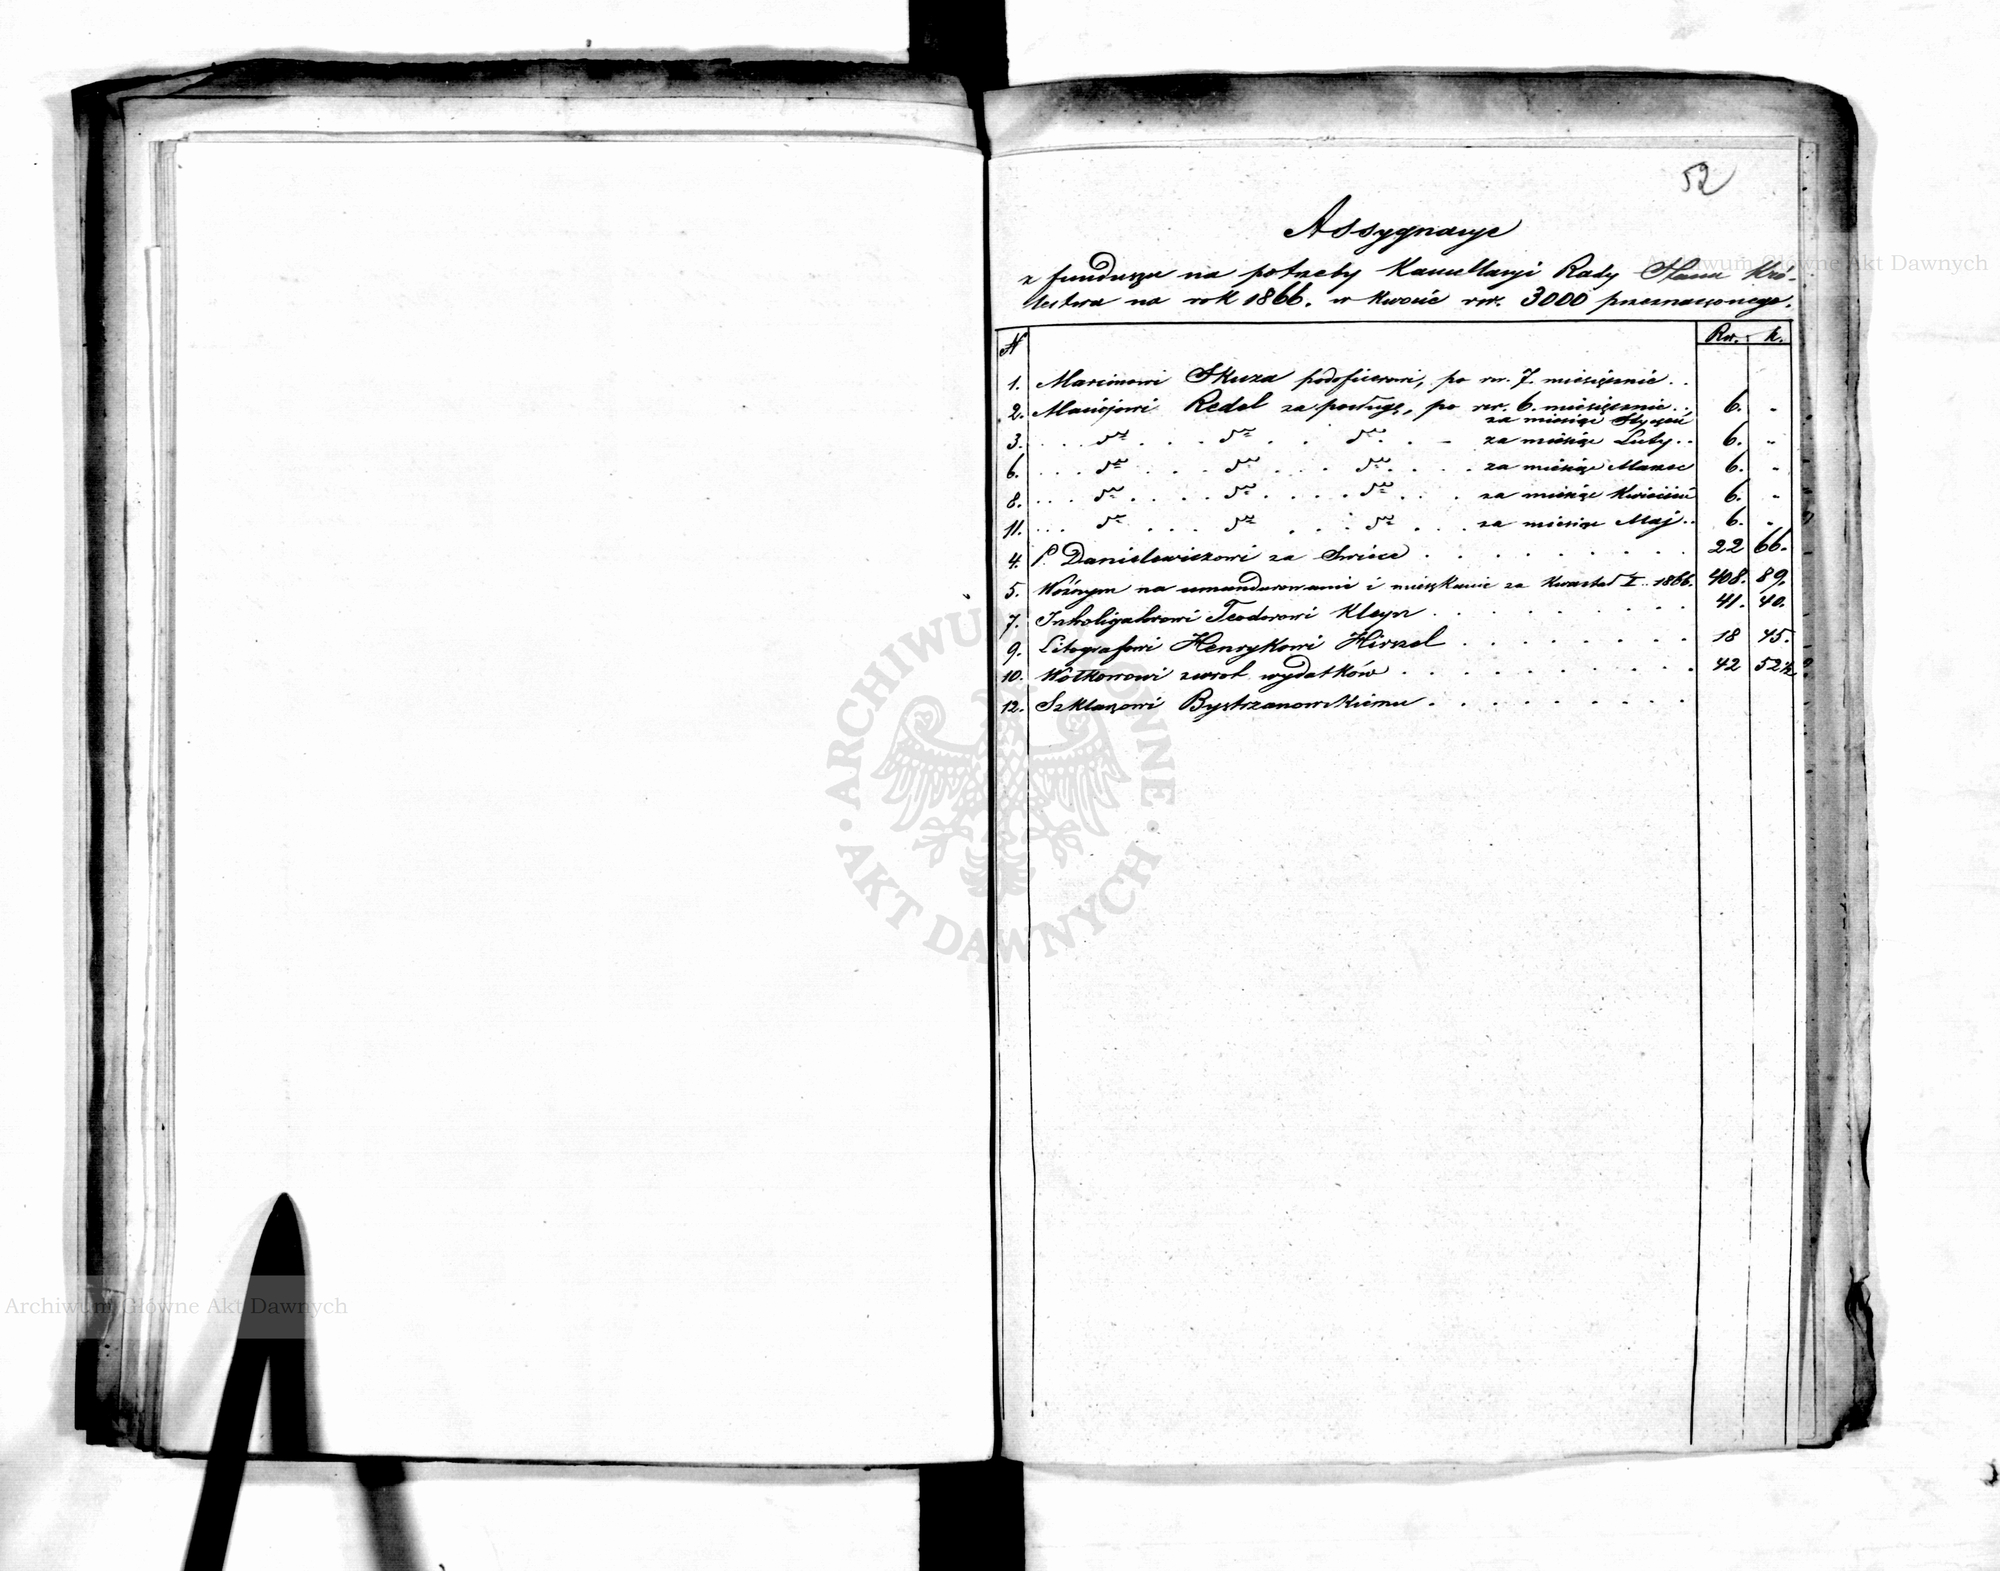 52
Assygnacye
z funduszu na potrzeby Kancellaryi Rady Stanu Kró-
lestwa na rok 1866. w kwocie rsr. 3000 przeznaczonego.
N Rsr. k.
1. Marcinowi Skuza podoficerowi, po rsr. 7. miesięcznie . .
2. Maciejowi Redel za posługę, po rsr. 6. miesięcznie . . 6. "
za miesiąc Styczeń
3. . . . dto . . . dto . . dto . . - za miesiąc Luty . . 6. "
6. . . . dto . . . dto . . . dto . . . . za miesiąc Marzec 6. "
8. . . . dto . . . . dto . . . . dto . . . za miesiąc Kwiecień 6. "
11. . . . dto . . . dto . . . dto . . . za miesiąc Maj . . 6. "
4. P. Danielewiczowi za Swiece . . . . . . . . . 22 66.
5. Woźnym na umundurowanie i mieszkanie za Kwartał I. 1866. 408. 89.
7. Introligatorowi Teodorowi Kleyn . . . . . . . . 41. 40.
9. Litografowi Henrykowi Hirszel . . . . . . . 18 45.
10. Wołkowowi zwrot wydatków . . . . . . . . . 42 52½
12. Szklarzowi Bystrzanowskiemu . . . . . . . . .
ARCHIWUM GŁÓWNE AKT DAWNYCH
Archiwum Główne Akt Dawnych
Archiwum Główne Akt Dawnych